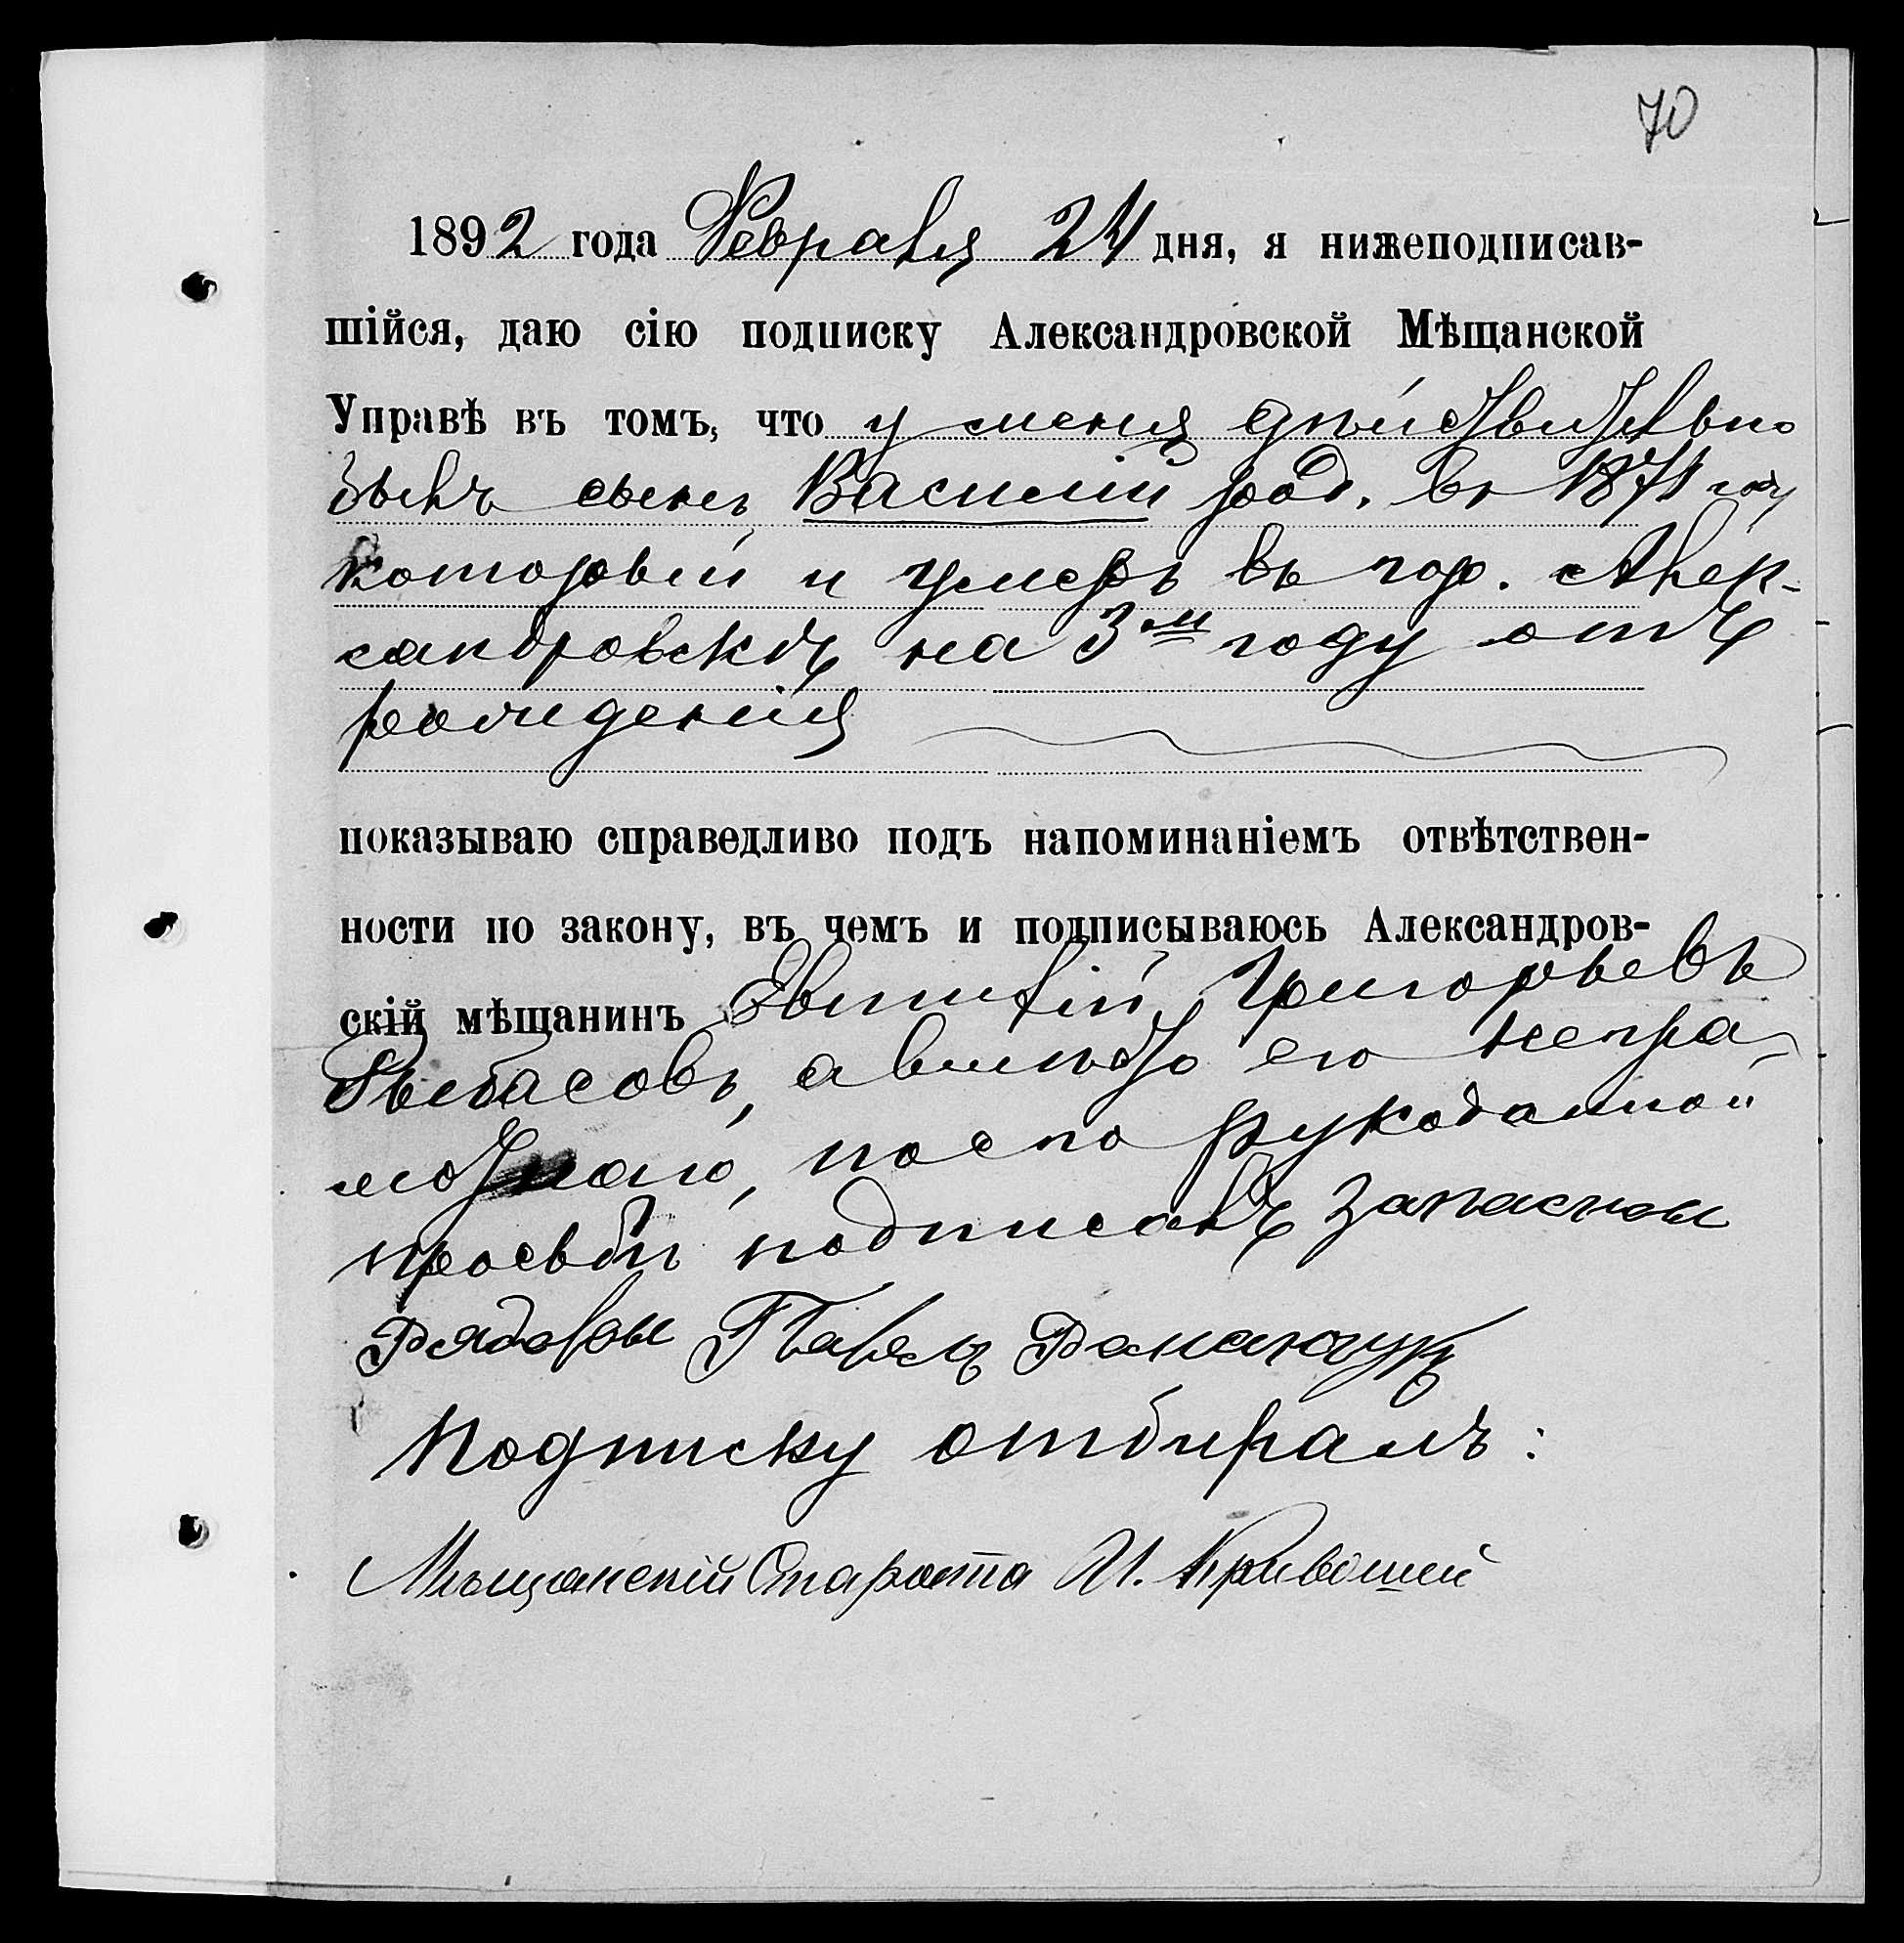 70
1892 года Февраля 24 дня, я нижеподписав-
шійся, даю сію подписку Александровской Мѣщанской
Управѣ въ томъ, что у меня дѣйствительно
былъ сынъ Василій род. въ 1871 году
который и умеръ въ гор. Алек-
сандровскѣ на 3м году отъ
рожденія
показываю справедливо подъ напоминаніемъ отвѣтствен-
ности по закону, въ чемъ и подписываюсь Александров-
скій мѣщанинъ Григорьевъ
а вмѣсто его негра-
мотнаго, по его рукоданной
прозьбѣ подписалъ запасный
Рядовой Павелъ Романчукъ
Подписку отбиралъ:
Мѣщанскій Староста И. Кривошей